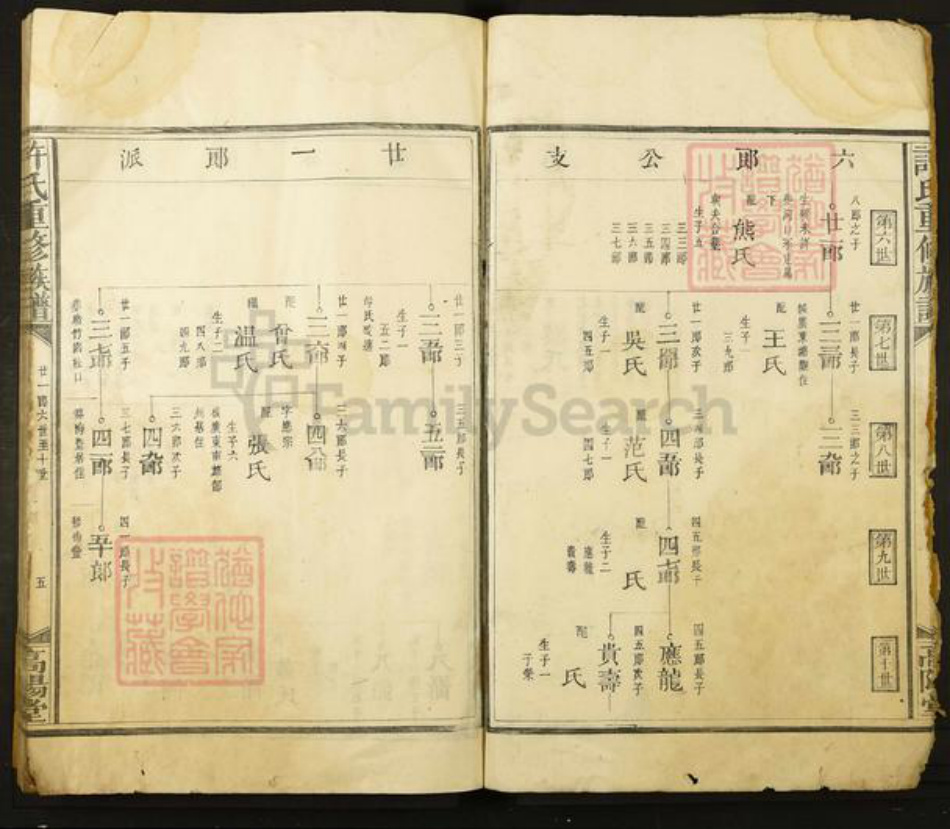 六郎公支
第六世
八郎之子
廿一郎
配
熊氏
與夫合葬
生子五
三三郎
三四郎
三五郎
三六郎
三七郎
第七世
廿一郎長子
三三郎
配
王氏
生子一
三九郎
廿一郎次子
三四郎
配
吳氏
生子一
四五郎
第八世
三三郎之子
三九郎
三四郎長子
四五郎
配
范氏
生子一
四七郎
第九世
四五郎長子
四七郎
配
氏
生子二
應龍
貴壽
第十世
四五郎長子
應龍
四五郎次子
貴壽
配
氏
生子一
子榮
許氏重修族譜
高陽堂
廿一郎派
廿一郎三子
三五郎
生子一
五二郎
廿一郎四子
三六郎
配
曾氏
繼
温氏
生子二
四八郎
四九郎
廿一郎五子
三七郎
三五郎長子
五二郎
三六郎長子
四八郎
字應宗
配
張氏
生子六
三六郎次子
四九郎
三七郎長子
四一郎
四一郎長子
五十郎
許氏重修族譜
廿一郎六世至十世
五
高陽堂
FamilySearch